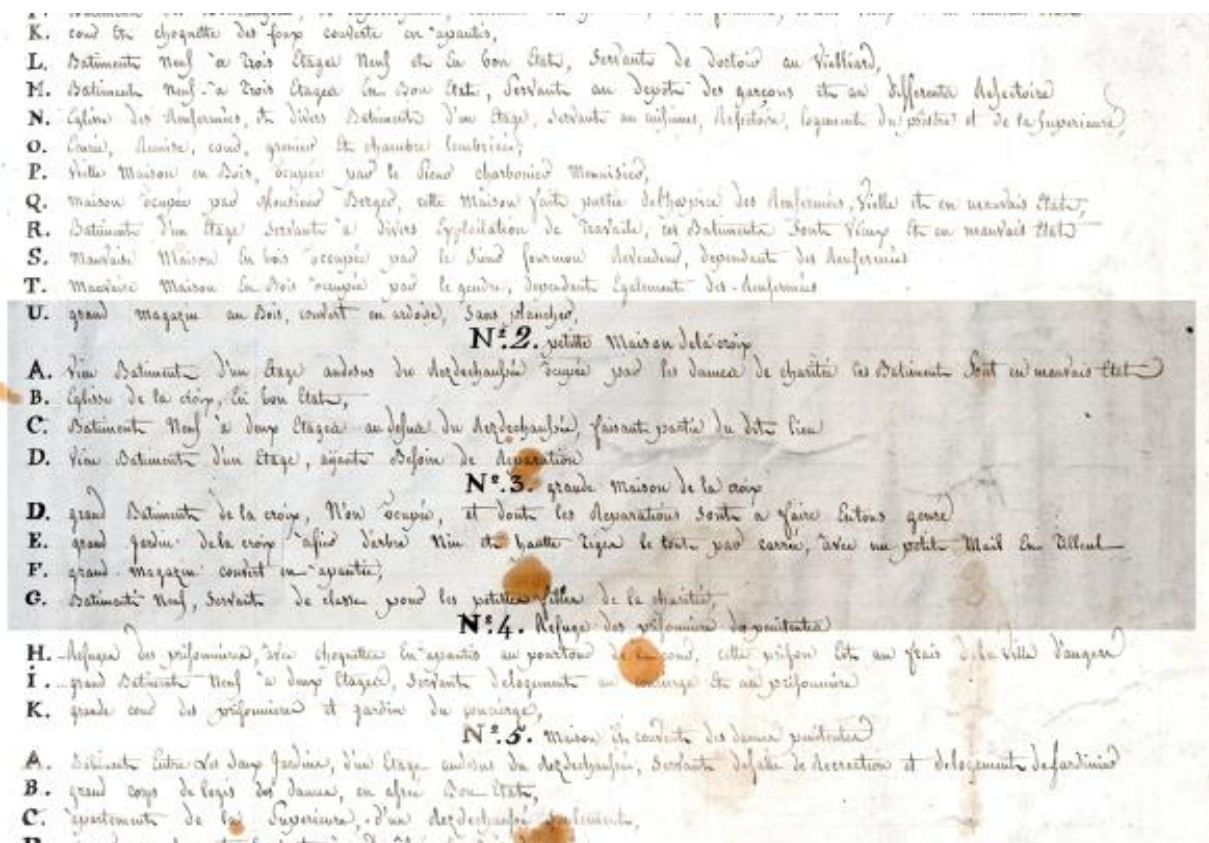 K. cour et choquette des foux couverte en apantis,
L. Batiment neuf a trois Etages Neuf et En bon Etat, Servant de dortoir au Vielliard,
M. Batiment Neuf a trois Etages En Bon Etat, Servant au depot des garçons et au differents Refectoire
N. Eglise des Renfermées, et divers Batiments d'un Etage, Servant au cuisines, Refectoire, logement du prêtre et de la Superieure,
O. Ecurie, Remise, cour, grenier Et chambre lembrisée,
P. Vielle Maison en Bois, ocupée par le Sieur charbonier Menuisier,
Q. maison ocupée par Monsieur Berger, cette Maison fait partie delhospice des Renfermés, Vielle et en mauvais Etat,
R. Batiment d'un Etage Servant a divers Exploitation de Travails, ces Batiments Sont Vieux Et en mauvais Etat
S. Mauvaise Maison En bois occupée par le Sieur fourmon Revendeur, dependant des Renfermées
T. Mauvaise Maison En Bois ocupée par le gendre, dependant Egalement des Renfermées
U. grand magazin au Bois, couvert en ardoise, Sans plancher,
N.º 2. petitte Maison delacroix
A. Vieu Batiment d'un Etage audesus du Rezdechaussée ocupée par les dames de charitée les Batiment Sont en mauvais Etat
B. Eglisse de la croix, En bon Etat,
C. Batiment Neuf a deux Etages au desus du Rezdechaussée, faisant partie du dit lieu
D. Vieu Batiment d'un Etage, ayant Besoin de Reparation
N.º 3. grande Maison de la croix
D. grand Batiment de la croix, Non ocupée, et dont les Reparations Sont a faire En tous genre
E. grand Jardin dela croix afier d'arbre Nin et hautte Tiges le tout par carrée, avec un petit Mail En Tilleul
F. grand magazin couvert en apantée,
G. Batiment Neuf, Servant de classe pour les petittes filles de la charitée,
N.º 4. Refuge des prisonniere des penitentes
H. Refuges des prisonnieres, avec choquettes En apantis au pourtour de la cour, cette prison Est au frais dela Ville d'angers
I. grand Batiment Neuf a deux Etages, Servant delogement au concierge Et au prisonniere
K. grande cour des prisonnieres et jardin du concierge,
N.º 5. Maison et couvent des dames penitentes
A. Batiment Entre Les deux Jardins, d'un Etage audesus du Rezdechaussée, Servant desalle de Recreation et delogement de Jardinier
B. grand corps de logis des dames, en assée Bon Etat,
C. apartement de la Superieure, d'un Rezdechaussée Seulement,